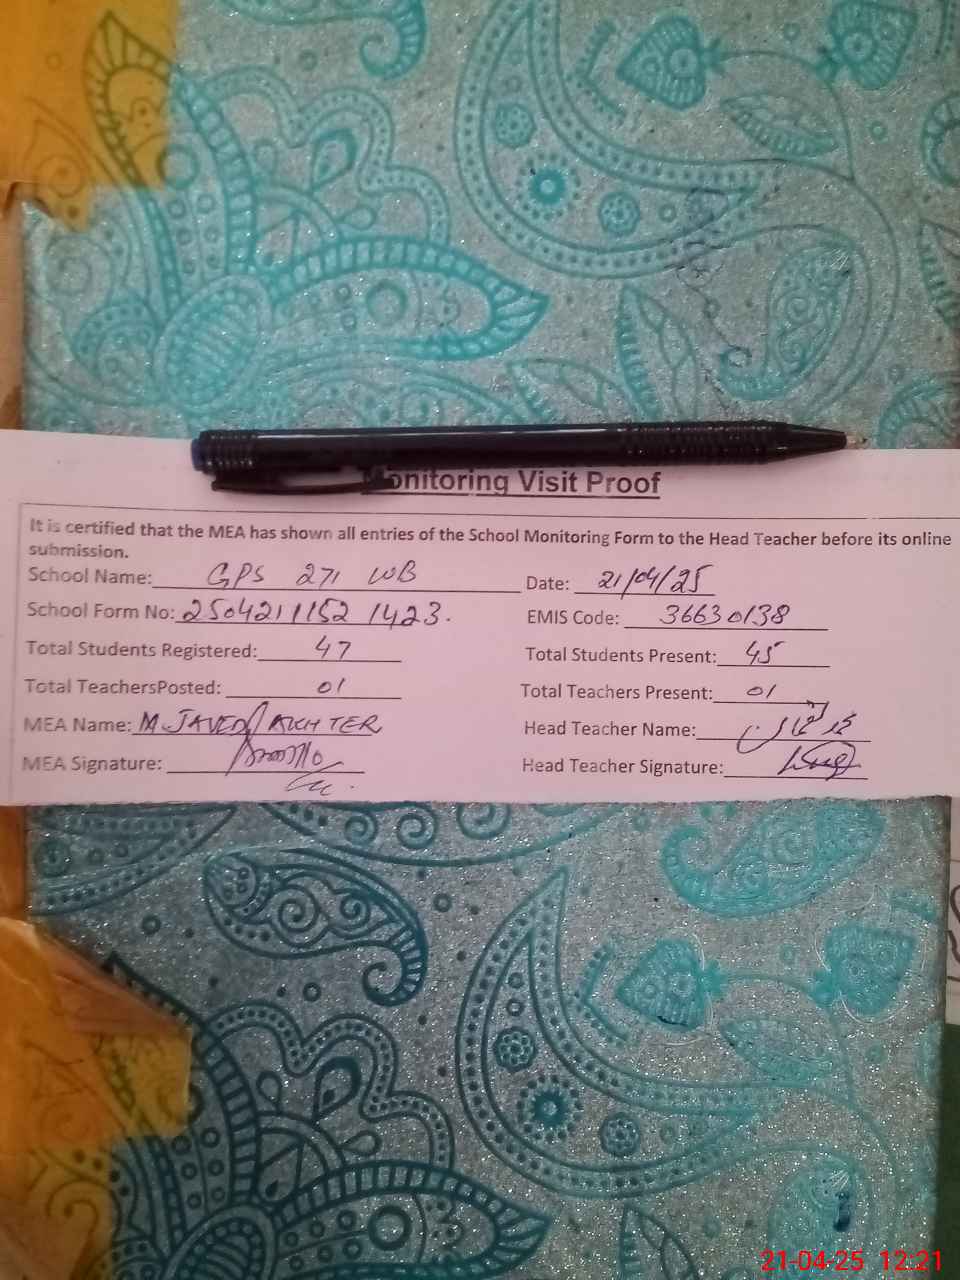 Monitoring Visit Proof
It is certified that the MEA has shown all entries of the School Monitoring Form to the Head Teacher before its online
submission.
School Name: GPS 271 WB Date: 21/04/25
School Form No: 2504211152 1423. EMIS Code: 36630138
Total Students Registered: 47 Total Students Present: 45
Total TeachersPosted: 01 Total Teachers Present: 01
MEA Name: M. JAVED AKHTER Head Teacher Name:
MEA Signature: Head Teacher Signature:
21-04-25 12:21